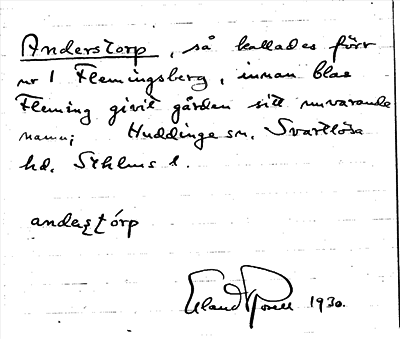 Anderstorp, så kallades förr
nr 1 Flemingsberg, innan Claes
Fleming givit gården sitt nuvarande
namn; Huddinge sn. Svartlösa
hd. Sthlms l.
andeʂʈórp
Erland Rosell 1930.